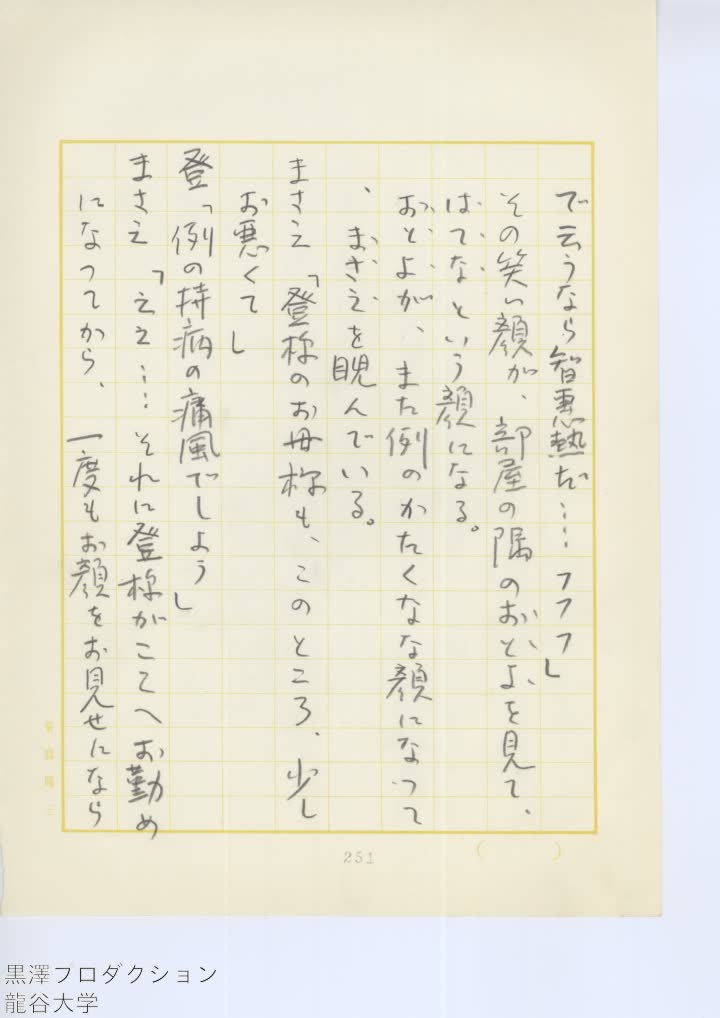 で云うなら智恵熱だ…フフフ」
その笑い顔が、部屋の隅のおとよを見て、
はてなという顔になる。
おとよが、また例のかたくなな顔になって
、まさえを睨んでいる。
まさえ「登様のお母様も、このところ、少し
お悪くて」
登「例の持病の痛風でしょう」
まさえ「ええ…それに登様がここへお勤め
になってから、一度もお顔をお見せになら
251
黒澤プロダクション
龍谷大学